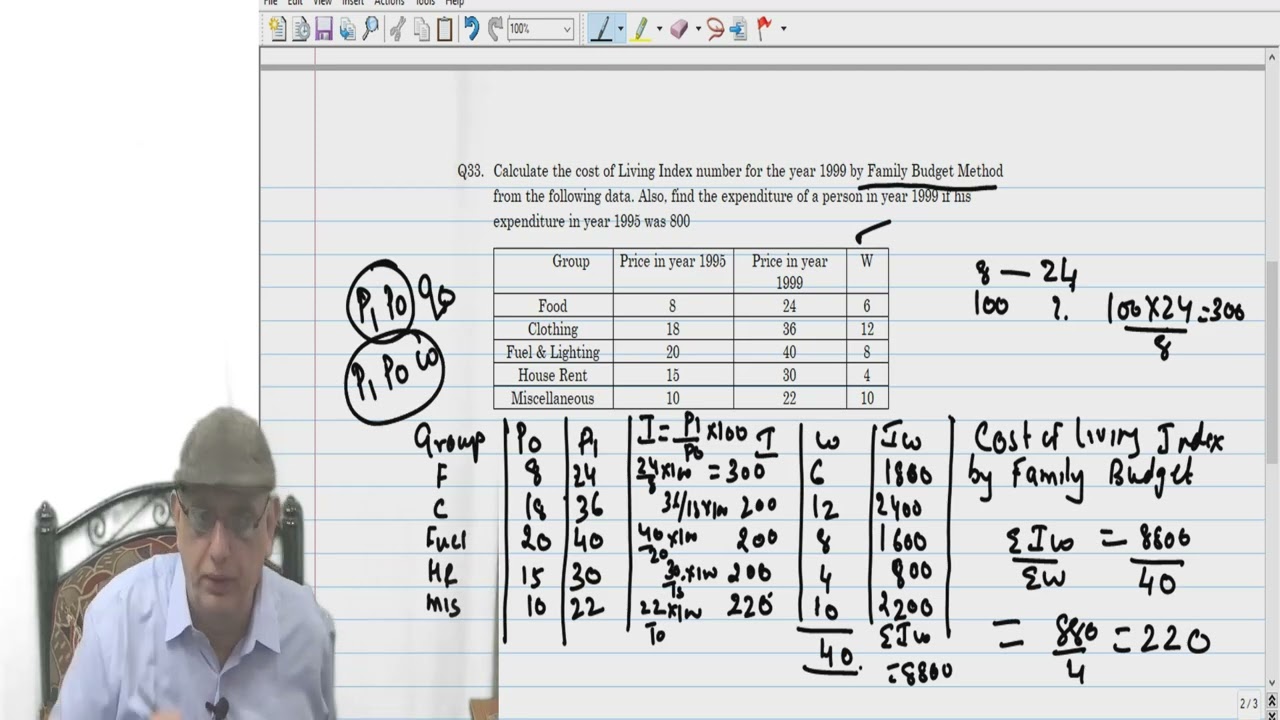 File Edit View Insert Actions Tools Help
100%
Q33. Calculate the cost of Living Index number for the year 1999 by Family Budget Method
from the following data. Also, find the expenditure of a person in year 1999 if his
expenditure in year 1995 was 800
Group Price in year 1995 Price in year 1999 W
Food 8 24 6
Clothing 18 36 12
Fuel & Lighting 20 40 8
House Rent 15 30 4
Miscellaneous 10 22 10
P1 P0 q0
P1 P0 w
8 — 24
100 ?
100×24 = 300
8
Group P0 P1 I = P1/P0 ×100 I w Iw
F 8 24 24/8 ×100 = 300 6 1800
C 18 36 36/18×100 200 12 2400
Fuel 20 40 40/20 ×100 200 8 1600
HR 15 30 30/15 ×100 200 4 800
Mis 10 22 22/10 ×100 220 10 2200
40 ΣIw
=8800
Cost of living Index
by Family Budget
ΣIw/Σw = 8800/40
= 880/4 = 220
2/3